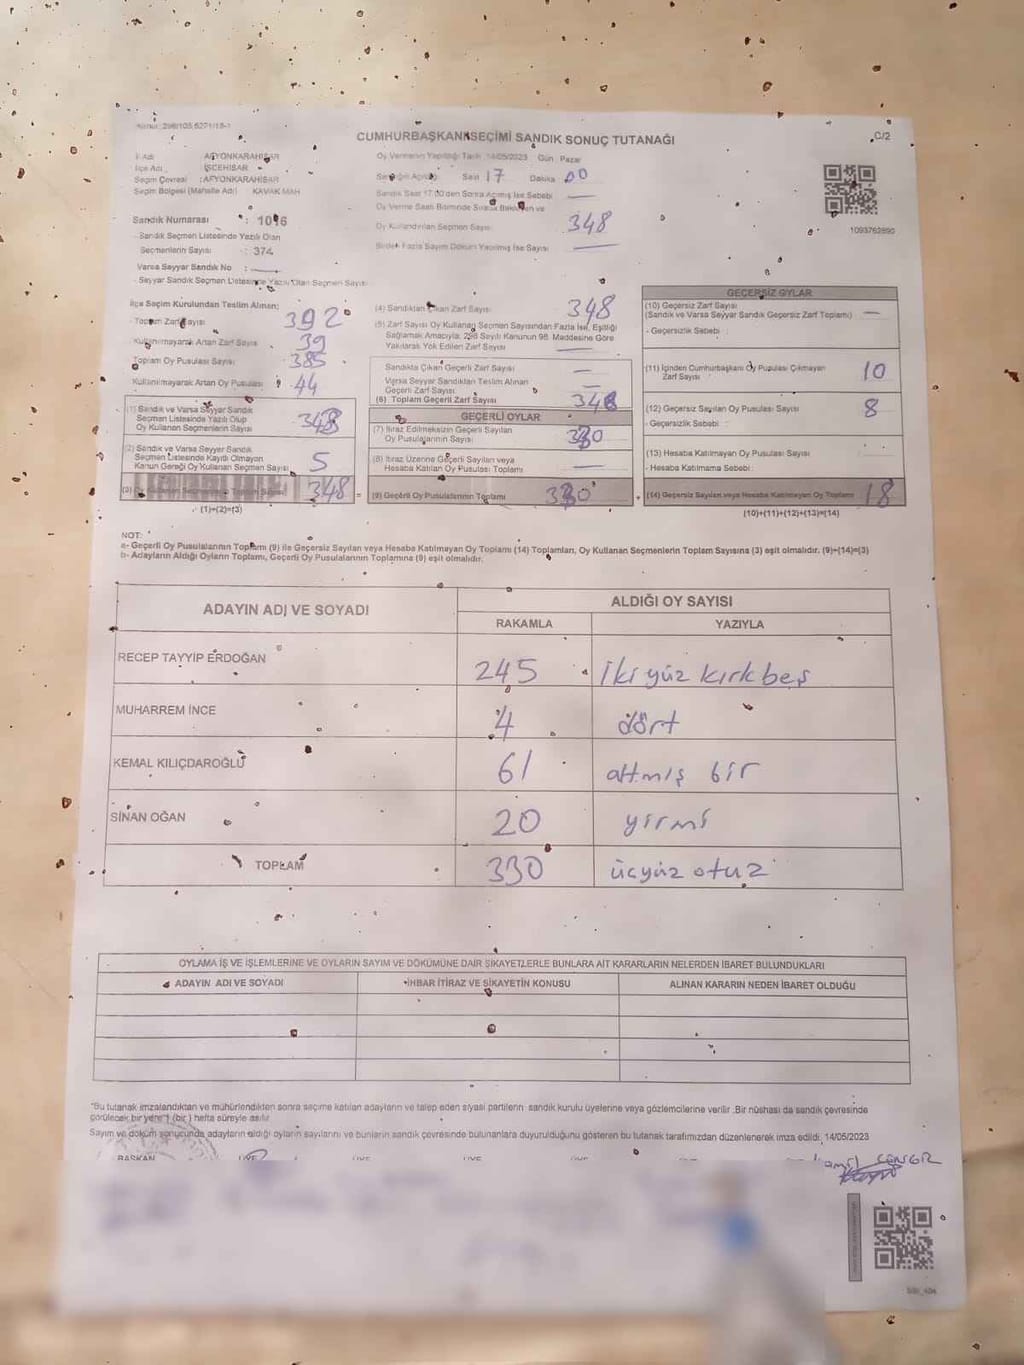 CUMHURBAŞKANI SEÇİMİ SANDIK SONUÇ TUTANAĞI
C/2
İl Adı : AFYONKARAHİSAR
İlçe Adı : İSCEHİSAR
Seçim Çevresi : AFYONKARAHİSAR
Seçim Bölgesi (Mahalle Adı) KAVAK MAH
Sandık Numarası : 1016
Sandık Seçmen Listesinde Yazılı Olan
Seçmenlerin Sayısı : 374
Varsa Seyyar Sandık No :
Seyyar Sandık Seçmen Listesinde Yazılı Olan Seçmen Sayısı
Oy Vermenin Yapıldığı Tarih 14/05/2023 Gün Pazar
Sandığın Açılışı Saat 17 Dakika 00
Sandık Saat 17.00'den Sonra Açılmış İse Sebebi
Oy Verme Saati Bitiminde Sırada Bekleyen ve
Oy Kullandırılan Seçmen Sayısı 348
Birden Fazla Sayım Döküm Yapılmış İse Sayısı
1093762890
İlçe Seçim Kurulundan Teslim Alınan;
Toplam Zarf Sayısı 392
Kullanılmayarak Artan Zarf Sayısı 39
Toplam Oy Pusulası Sayısı 385
Kullanılmayarak Artan Oy Pusulası 44
(1) Sandık ve Varsa Seyyar Sandık
Seçmen Listesinde Yazılı Olup
Oy Kullanan Seçmenlerin Sayısı
(2) Sandık ve Varsa Seyyar Sandık
Seçmen Listesinde Kaydı Olmayan
Kanun Gereği Oy Kullanan Seçmen Sayısı 5
(3) Oy Kullanan Seçmenlerin Toplam Sayısı 348
(1)+(2)=(3)
(4) Sandıktan Çıkan Zarf Sayısı 348
(5) Zarf Sayısı Oy Kullanan Seçmen Sayısından Fazla İse, Eşitliği
Sağlamak Amacıyla, 298 Sayılı Kanunun 98. Maddesine Göre
Yakılarak Yok Edilen Zarf Sayısı
Sandıkta Çıkan Geçerli Zarf Sayısı
Varsa Seyyar Sandıktan Teslim Alınan
Geçerli Zarf Sayısı
(6) Toplam Geçerli Zarf Sayısı 348
GEÇERLİ OYLAR
(7) İtiraz Edilmeksizin Geçerli Sayılan
Oy Pusulalarının Sayısı 330
(8) İtiraz Üzerine Geçerli Sayılan veya
Hesaba Katılan Oy Pusulası Toplamı
(9) Geçerli Oy Pusulalarının Toplamı 330
GEÇERSİZ OYLAR
(10) Geçersiz Zarf Sayısı
(Sandık ve Varsa Seyyar Sandık Geçersiz Zarf Toplamı)
- Geçersizlik Sebebi :
(11) İçinden Cumhurbaşkanı Oy Pupulası Çıkmayan
Zarf Sayısı 10
(12) Geçersiz Sayılan Oy Pusulası Sayısı 8
- Geçersizlik Sebebi :
(13) Hesaba Katılmayan Oy Pusulası Sayısı
- Hesaba Katılmama Sebebi :
(14) Geçersiz Sayılan veya Hesaba Katılmayan Oy Toplamı 18
(10)+(11)+(12)+(13)=(14)
NOT:
a- Geçerli Oy Pusulalarının Toplamı (9) ile Geçersiz Sayılan veya Hesaba Katılmayan Oy Toplamı (14) Toplamları, Oy Kullanan Seçmenlerin Toplam Sayısına (3) eşit olmalıdır. (9)+(14)=(3)
b- Adayların Aldığı Oyların Toplamı, Geçerli Oy Pusulalarının Toplamına (9) eşit olmalıdır.
ADAYIN ADI VE SOYADI
ALDIĞI OY SAYISI
RAKAMLA YAZIYLA
RECEP TAYYİP ERDOĞAN 245 ikiyüz kırkbeş
MUHARREM İNCE 4 dört
KEMAL KILIÇDAROĞLU 61 altmış bir
SİNAN OĞAN 20 yirmi
TOPLAM 330 üçyüz otuz
OYLAMA İŞ VE İŞLEMLERİNE VE OYLARIN SAYIM VE DÖKÜMÜNE DAİR ŞİKAYETLERLE BUNLARA AİT KARARLARIN NELERDEN İBARET BULUNDUKLARI
ADAYIN ADI VE SOYADI İHBAR İTİRAZ VE ŞİKAYETİN KONUSU ALINAN KARARIN NEDEN İBARET OLDUĞU
"Bu tutanak imzalandıktan ve mühürlendikten sonra seçime katılan adayların ve talep eden siyasi partilerin sandık kurulu üyelerine veya gözlemcilerine verilir .Bir nüshası da sandık çevresinde
görülecek bir yere 1 (bir ) hafta süreyle asılır.
Sayım ve döküm sonucunda adayların aldığı oyların sayılarını ve bunların sandık çevresinde bulunanlara duyurulduğunu gösteren bu tutanak tarafımızdan düzenlenerek imza edildi. 14/05/2023
BAŞKAN ÜYE ÜYE ÜYE ÜYE